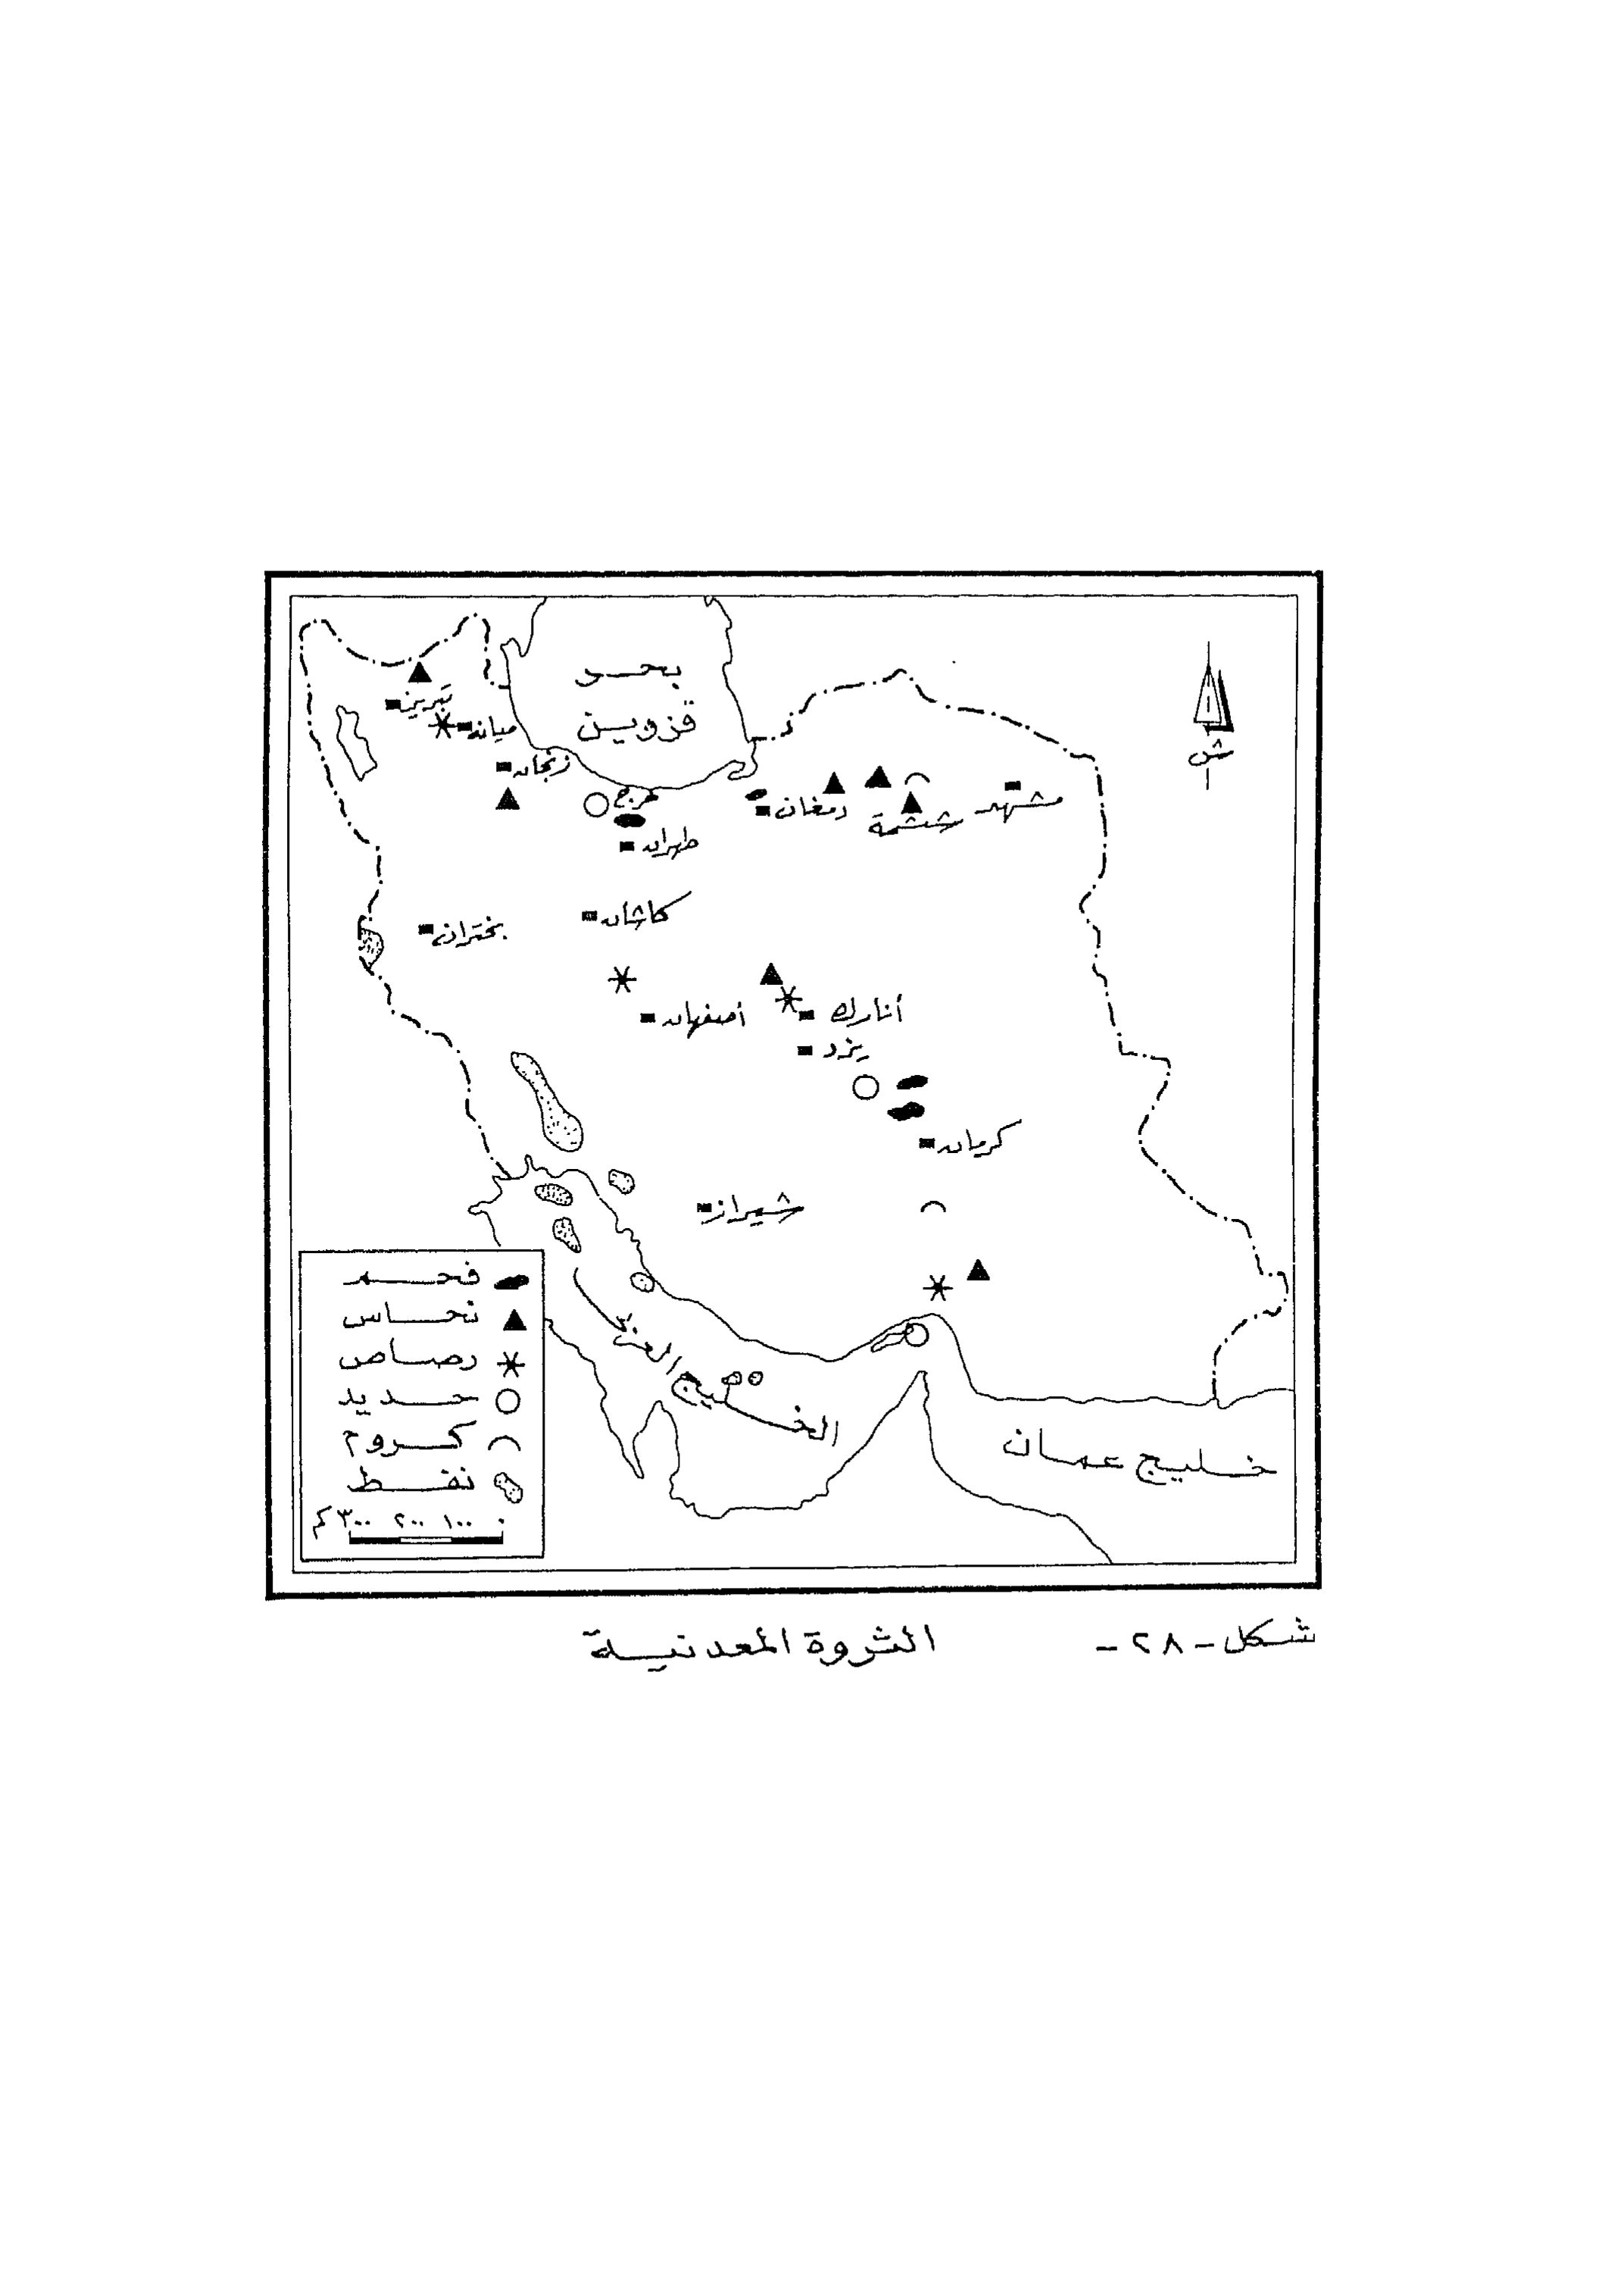 بحر
قزوين
ش
تبريز
ميانه
زنجان
كرج
طهران
دمغان
ششمة
مشهد
كاشان
بختران
أصفهان
أنارك
يزد
كرمان
شيراز
الخليج العربي
خليج عمان
فحم
نحاس
رصاص
حديد
كروم
نفط
٠ ١٠٠ ٢٠٠ ٣٠٠ كم
شكل - ٢٨ - الثروة المعدنية